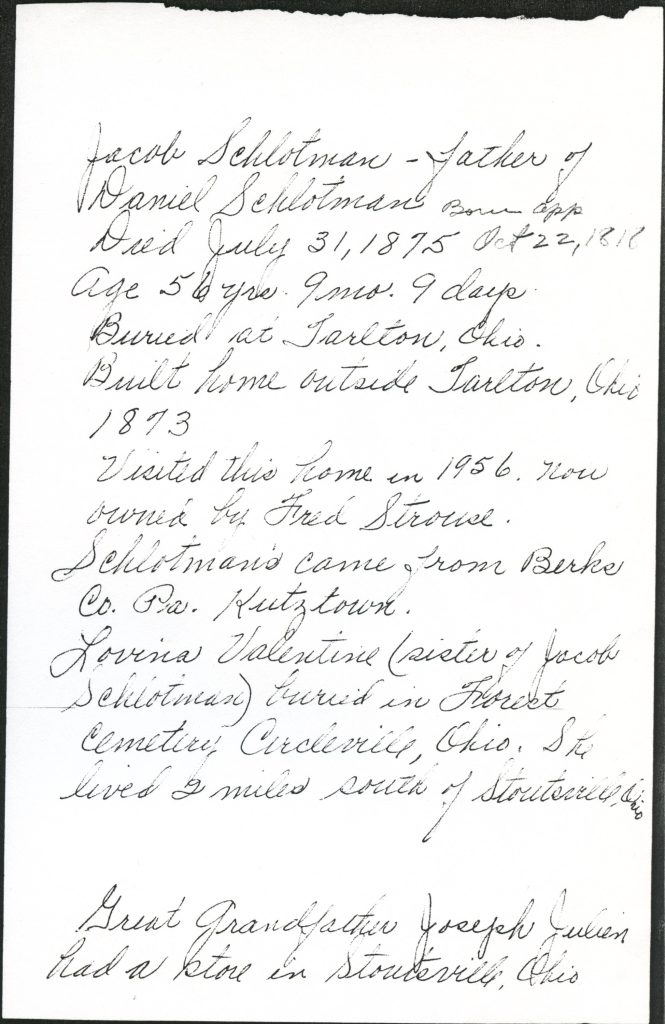 Jacob Schlotman - father of
Daniel Schlotman Born app
Died July 31, 1875 Oct 22, 1818
Age 56 yrs. 9 mo. 9 days
Buried at Tarlton, Ohio.
Built home outside Tarlton, Ohio
1873
Visited this home in 1956. now
owned by Fred Strouse.
Schlotman's came from Berks
Co. Pa. Kutztown.
Lovina Valentine (sister of Jacob
Schlotman) buried in Forest
Cemetery Circleville, Ohio. She
lived 2 miles south of Stoutsville, Ohio
Great Grandfather Joseph Julien
had a store in Stoutsville, Ohio